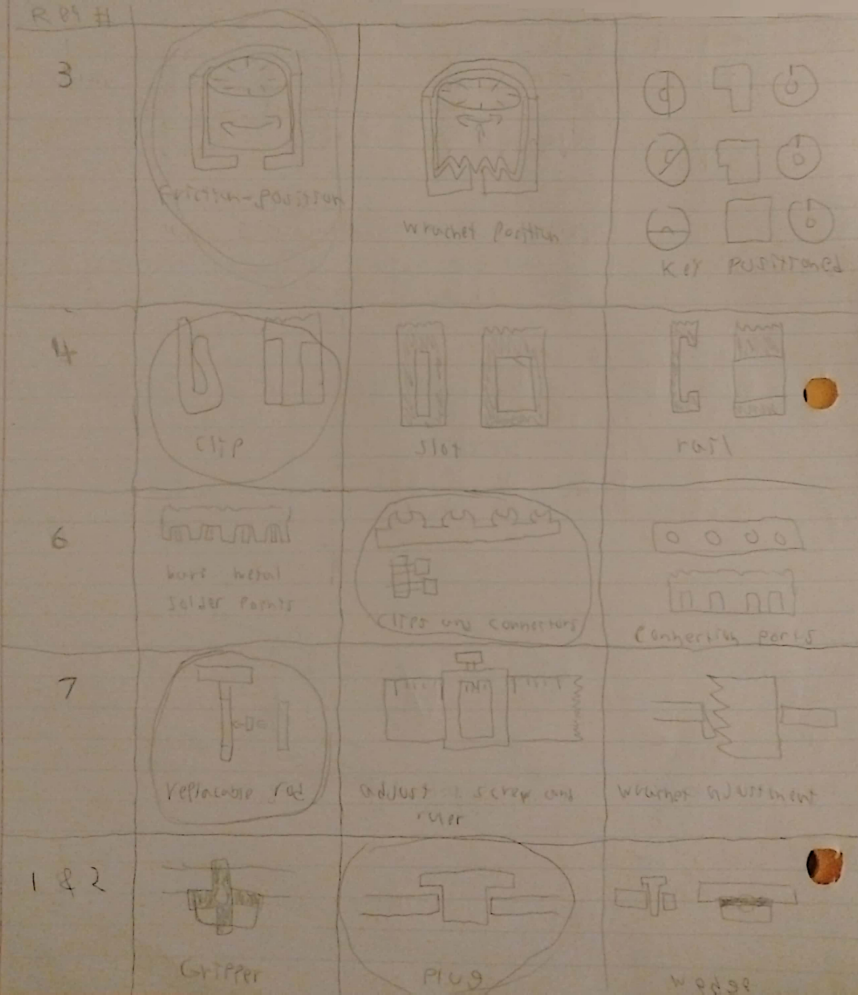 Req #
3
Friction-position
wrachet position
Key Positioned
4
Clip
slot
rail
6
bare metal
solder points
clips and connectors
Connection ports
7
replacable rod
adjust : screw and
ruler
wrachet adjustment
1 & 2
Gripper
Plug
wedge